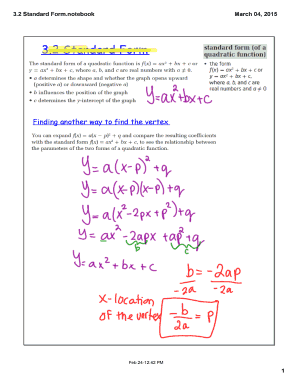 3.2 Standard Form.notebook
March 04, 2015
3.2 Standard Form
The standard form of a quadratic function is f(x) = ax² + bx + c or
y = ax² + bx + c, where a, b, and c are real numbers with a ≠ 0.
• a determines the shape and whether the graph opens upward
(positive a) or downward (negative a)
• b influences the position of the graph
• c determines the y-intercept of the graph
standard form (of a
quadratic function)
• the form
f(x) = ax² + bx + c or
y = ax² + bx + c,
where a, b, and c are
real numbers and a ≠ 0
y=ax²+bx+c
Finding another way to find the vertex
You can expand f(x) = a(x − p)² + q and compare the resulting coefficients
with the standard form f(x) = ax² + bx + c, to see the relationship between
the parameters of the two forms of a quadratic function.
y=a(x-p)²+q
y=a(x-p)(x-p)+q
y=a(x²-2px+p²)+q
y=ax²-2apx+ap²+q
b c
y=ax²+bx+c
b=-2ap
-2a -2a
x-location
of the vertex
-b/2a = p
Feb 24-12:42 PM
1